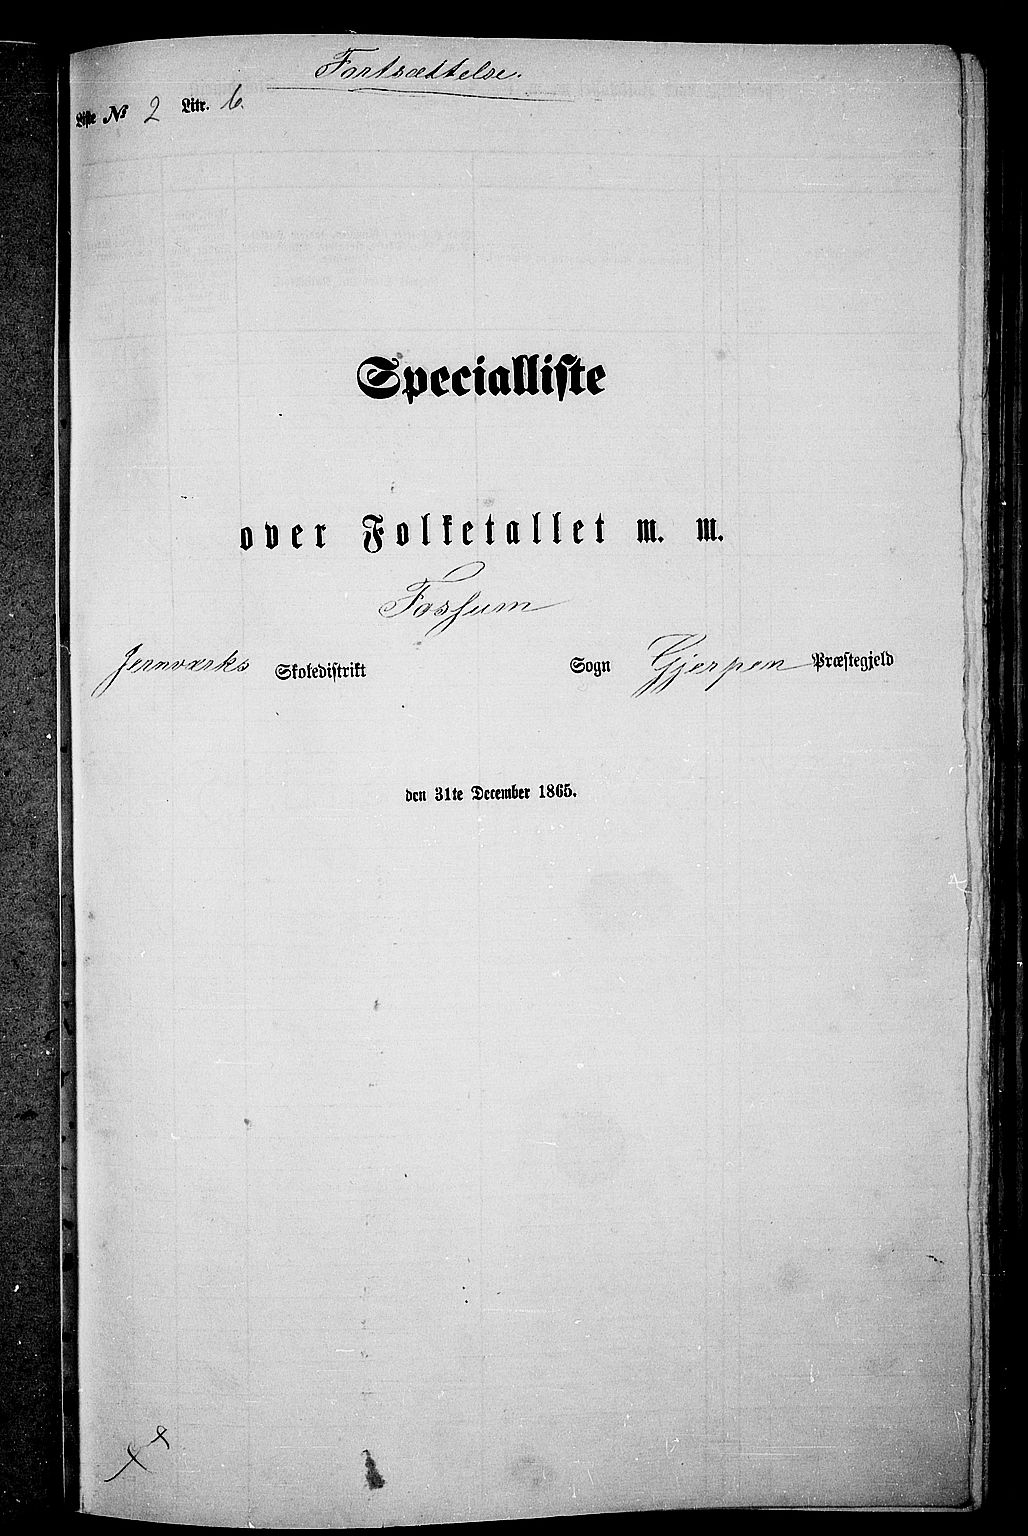 Fortsættelse.
Liste № 2 Litr. b.
Specialliste
over Folketallet m. m.
Fossum
Jernværks Skoledistrikt Sogn Gjerpen Præstegjeld
den 31te December 1865.